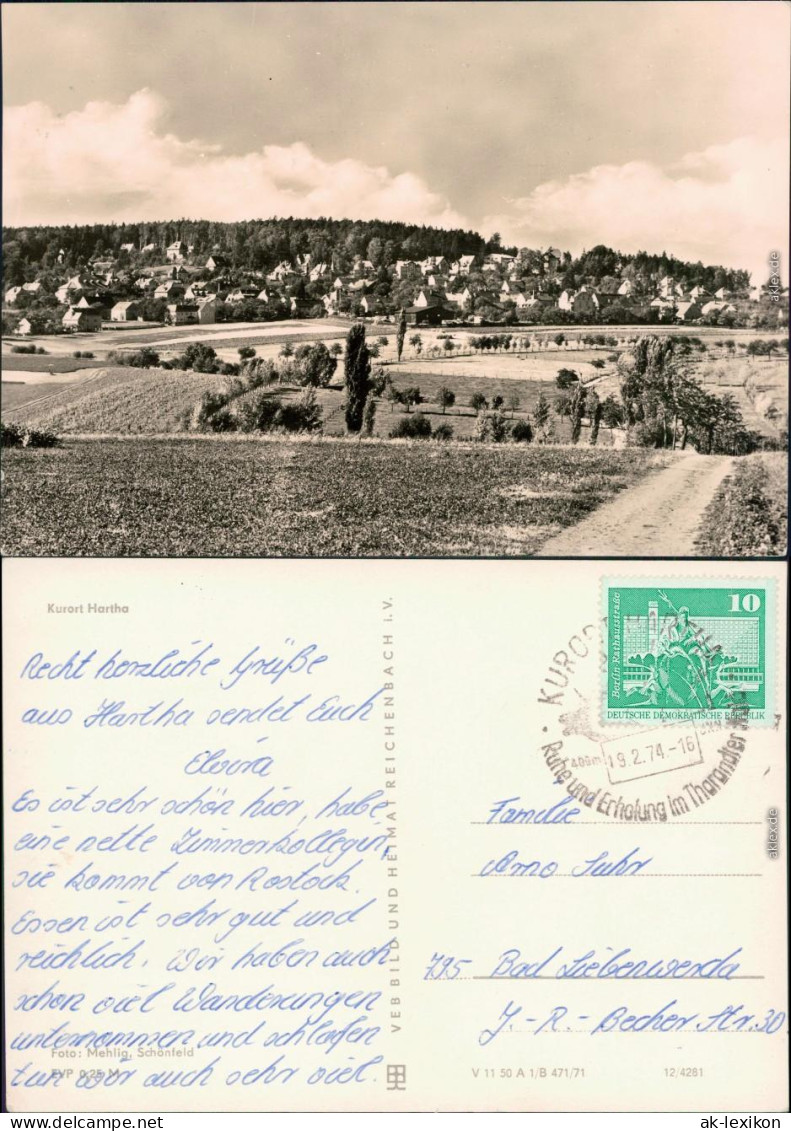 akleix.de
Kurort Hartha
Recht herzliche Grüße
aus Hartha sendet Euch
Elvira
Es ist sehr schön hier, habe
eine nette Zimmerkollegin,
sie kommt von Rostock.
Essen ist sehr gut und
reichlich. Wir haben auch
schon viel Wanderungen
unternommen und schlafen
tun wir auch sehr viel.
Foto: Mehlig, Schönfeld
EVP 0,25 M
VEB BILD UND HEIMAT REICHENBACH i.V.
Berlin-Rathausstraße
10
DEUTSCHE DEMOKRATISCHE REPUBLIK
KURORT HARTHA
400m
19.2.74-16
Ruhe und Erholung im Tharandter
Familie
Arno Suhr
795 Bad Liebenwerda
J.-R.-Becher Str. 30
V 11 50 A 1/B 471/71
12/4281
akleix.de
www.delcampe.net
ak-lexikon